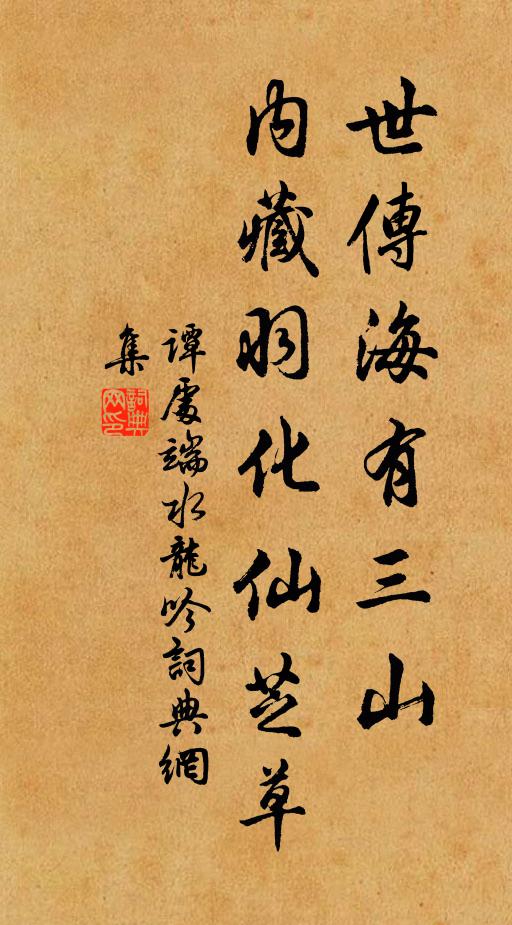 世傳海有三山
内藏羽化仙芝草
譚處端水龍吟詞典網
集
詞典
网印